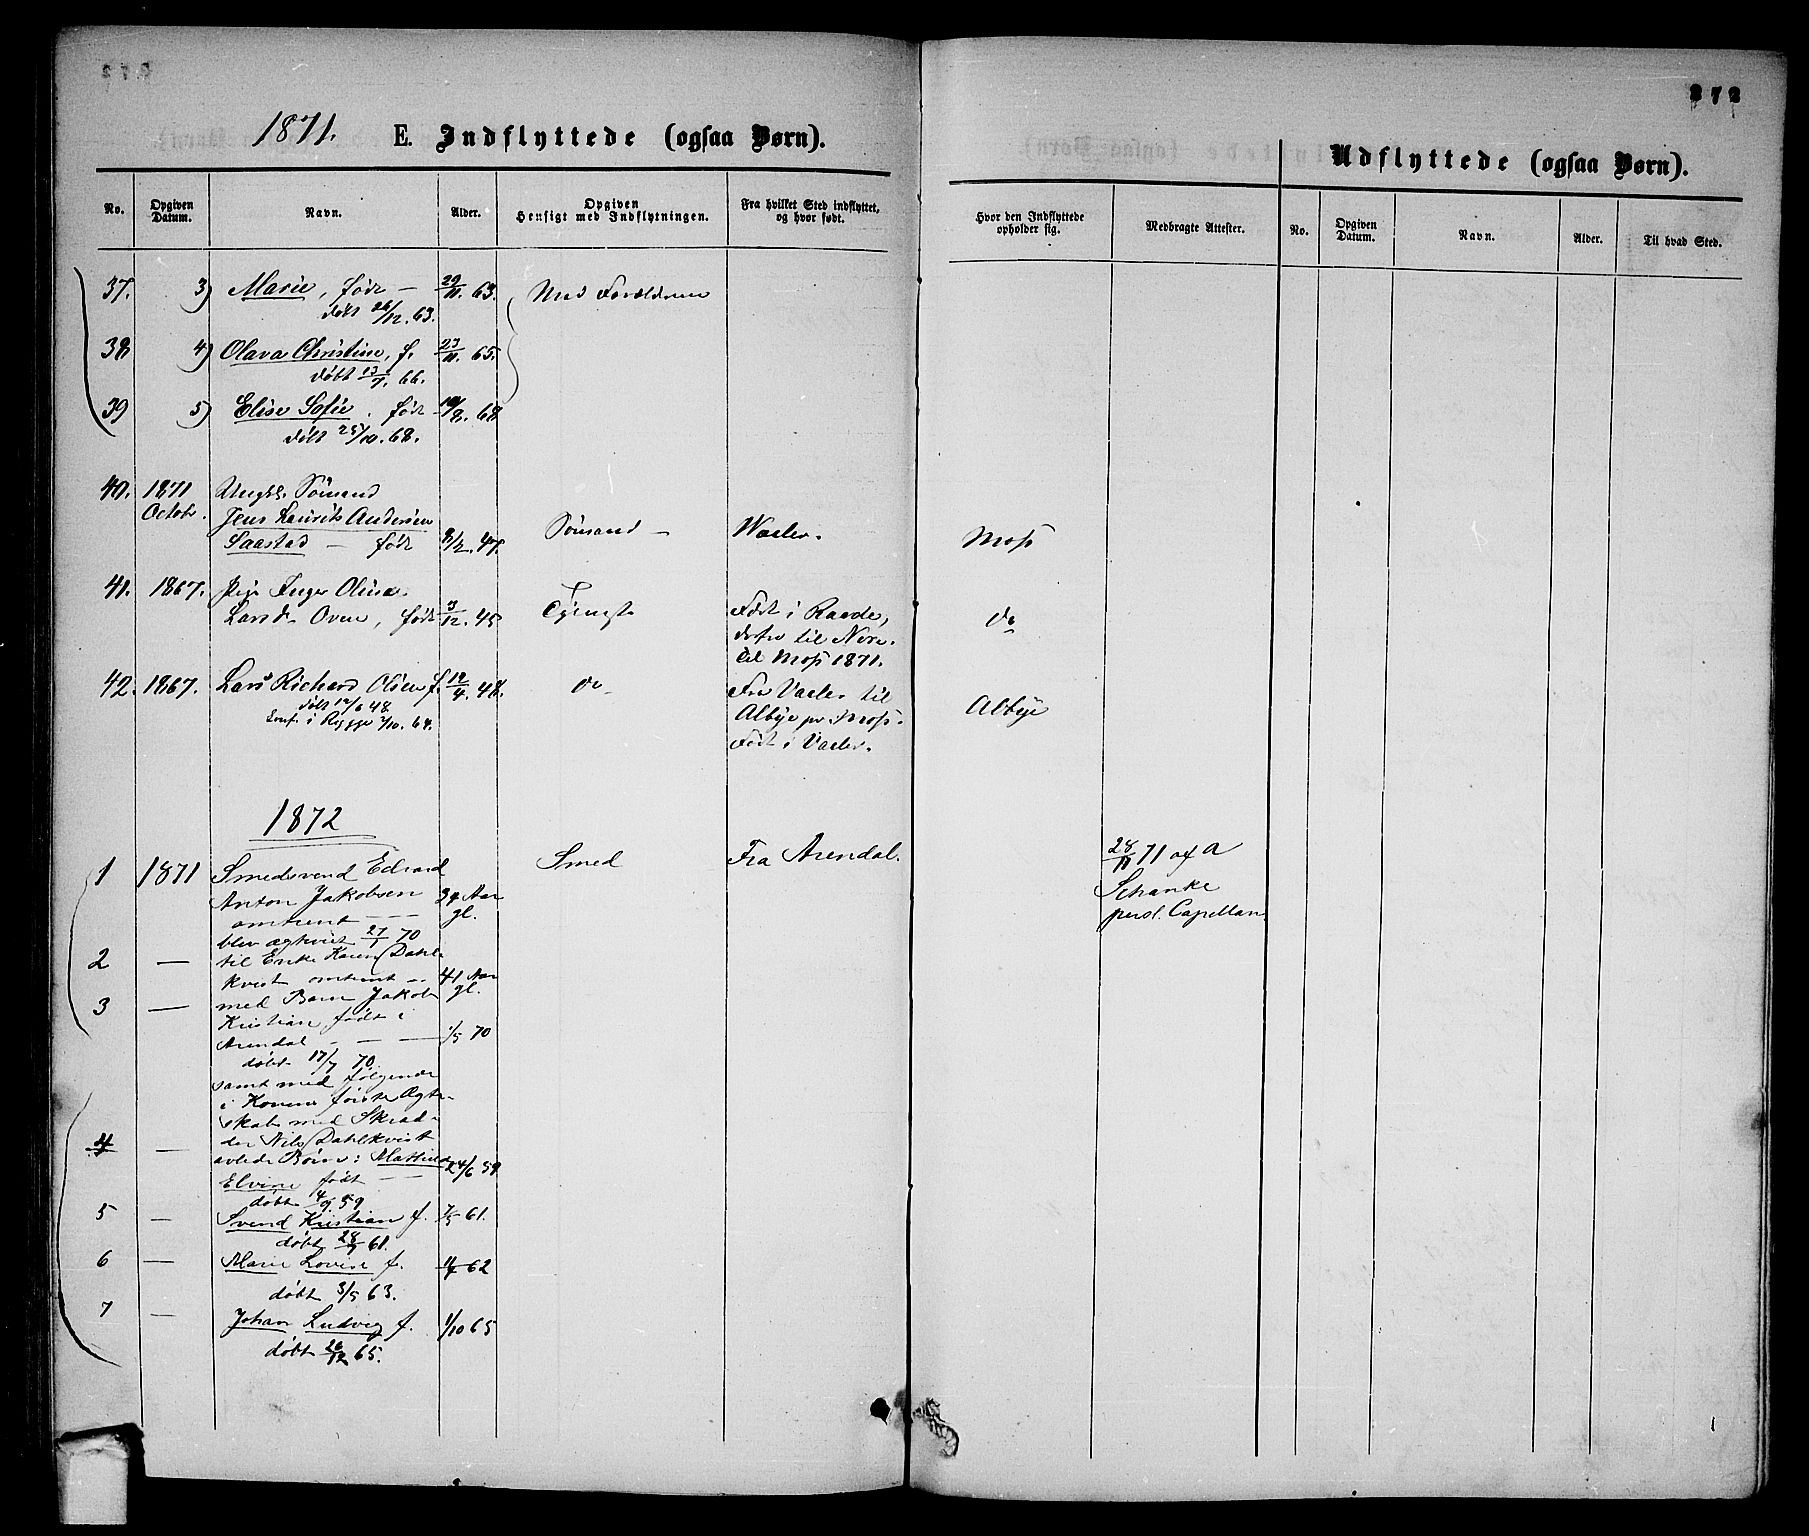 272
1871. E. Indflyttede (ogsaa Børn).
Udflyttede (ogsaa Børn).
No. Opgiven Datum. Navn. Alder. Opgiven Hensigt med Indflytningen. Fra hvilket Sted indflyttet, og hvor født. Hvor den Indflyttede opholder sig. Medbragte Attester. No. Opgiven Datum. Navn. Alder. Til hvad Sted.
37. 3) Marie, født – 29/11. 63. Med Forældrene
døbt 26/12. 63.
38 4) Olava Christine, f. 23/11. 65.
døbt 13/1. 66.
39 5) Elise Sofie. født 10/8. 68
døbt 25/10. 68.
40. 1871 Ungk. Sömand
Octobr. Jens Laurits Andersen
Saastad – født 8/2. 47. Sömand – Waaler. Moss
41. 1867. Pige Inger Olina
Larsdr Oven, født 3/12. 45 Tjeneste Født i Raade, do
derfra til
til Moss 1871.
42. 1867. Lars Richard Olsen f. 12/4. 48. do Fra Vaaler til Albye
døbt 12/6 48.
Conf. i Rygge /10. 64. Albye pr. Moss.
Født i Vaaler.
1872
1 1871 Smedsvend Edvard Smed Fra Arendal. 28/11 71 af A
Anton Jakobsen 39 Aar Schanke
omtrent – – – gl. persl. Capellan
blev ægteviet 27/1 70
2 — til Enke Karen Dahl-
kvist omtrent – 41 Aar
3 — med Barn Jakob gl.
Kristian født i
Arendal – – – 1/5 70
døbt 17/7 70
samt med følgende
i Konens første Ægte-
skab med Skræd-
der Nils Dahlkvist
4 — avlede Børn: Mathilde 24/6 59
Elvine født – –
døbt 4/9 59
5 — Svend Kristian f. 7/5 61.
døbt 28/7 61.
6 — Marie Lovise f. 62
døbt 3/5 63.
7 — Johan Ludvig f. 1/10 65
døbt 26/12 65.